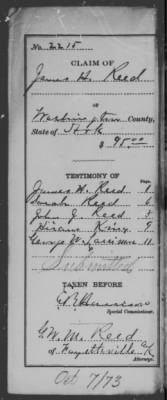 No. 2215
CLAIM OF
James H. Reed
OF
Washington County,
State of Ark
$ 95.00
TESTIMONY OF
James H. Reed 1
Sarah Reed 6
John J. Reed 8
Hiram King 9
George W. Harrison 11
Submitted
TAKEN BEFORE
E. B. Harrison
Special Commissioner.
G. W. M. Reed
of Fayetteville Ark
Attorney.
Oct 7/73